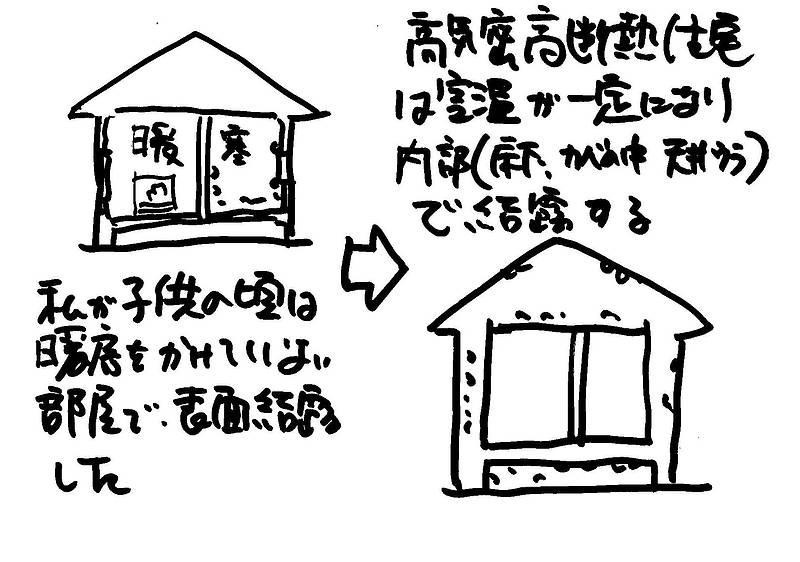 暖
寒
私が子供の頃は
暖房をかけていない
部屋で、表面結露
した
高気密高断熱住宅
は室温が一定になり
内部(床下、かべの中 天井うら)
で、結露する